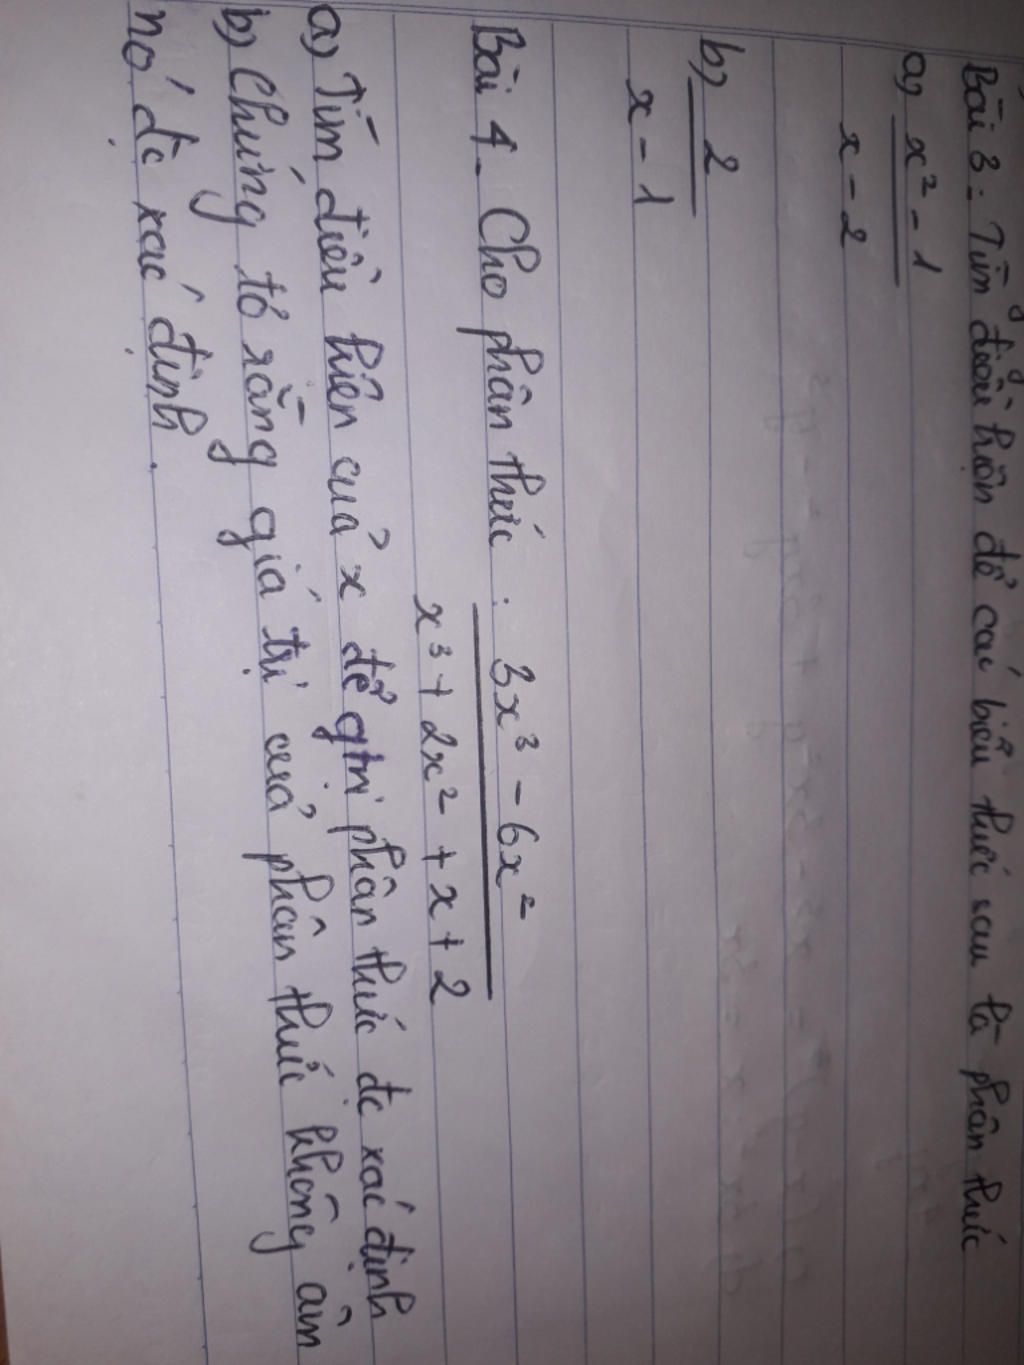 Bài 3: Tìm điều kiện để các biểu thức sau là phân thức
a) x² - 1
x - 2
b) 2
x - 1
Bài 4. Cho phân thức : 3x³ - 6x²
x³ + 2x² + x + 2
a) Tìm điều kiện của x để gtrị phân thức đc xác định
b) Chứng tỏ rằng giá trị của phân thức không âm
nó đc xác định.